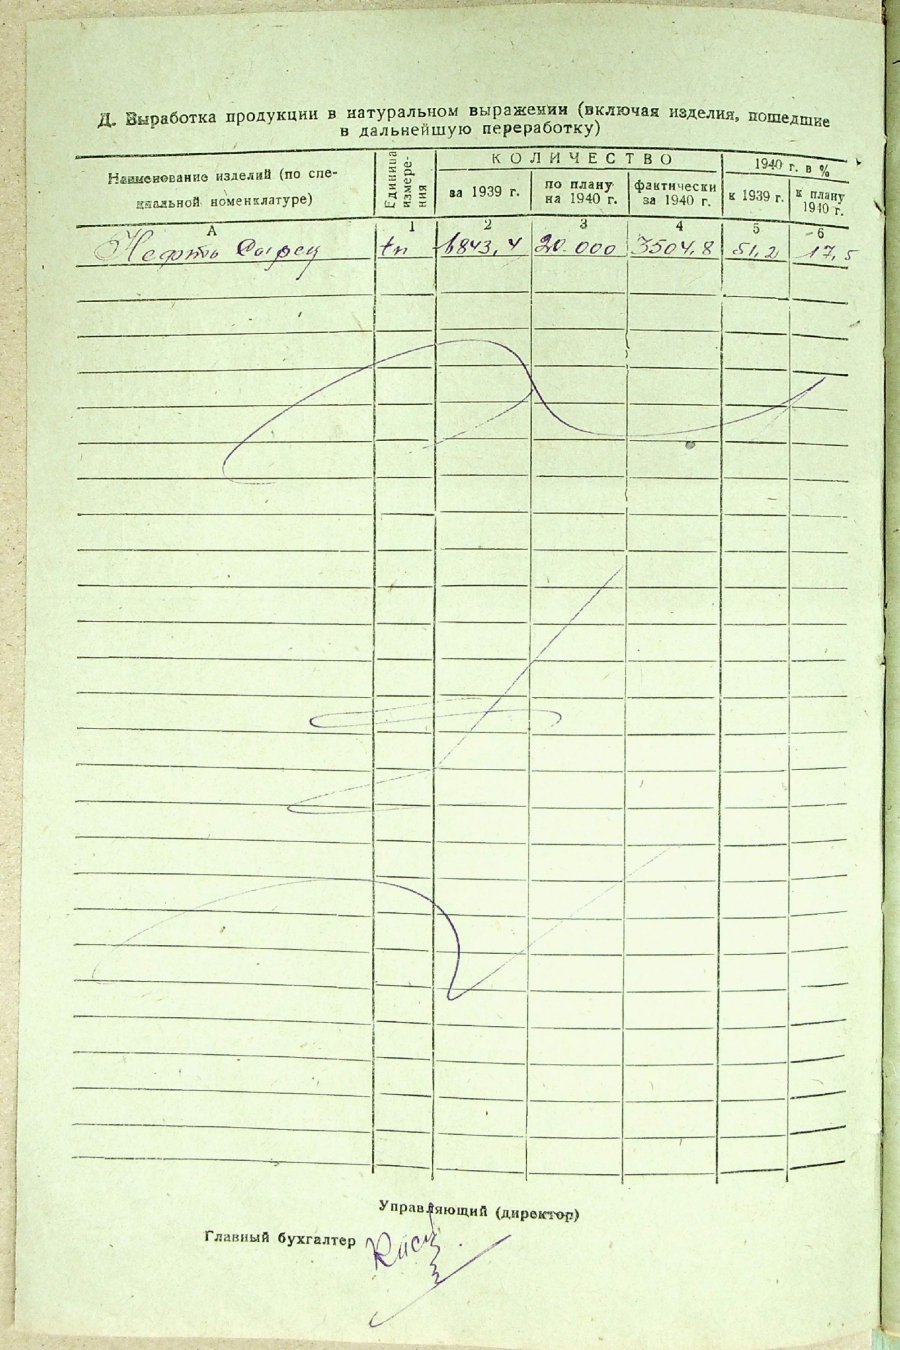 Д. Выработка продукции в натуральном выражении (включая изделия, пошедшие
в дальнейшую переработку)
Наименование изделий (по спе-
циальной номенклатуре)
Единица измере-
ния
КОЛИЧЕСТВО
за 1939 г.
по плану
на 1940 г.
фактически
за 1940 г.
1940 г. в %
к 1939 г.
к плану
1940 г.
А 1 2 3 4 5 6
Нефть Сырец tn 6843,4 20.000 3504,8 51,2 17,5
Управляющий (директор)
Главный бухгалтер